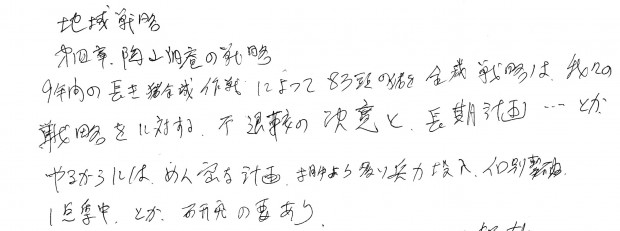 地域戦略
第四章、陶山訥庵の戦略
9年間の長き猪全滅作戦によって83頭の猪を全滅戦略は、我々の
戦略をに対する、不退転の決意と、長期計画…とか
やるからには、めん密な計画、兵力投入、個別撃破、
1点集中、とか、研究の要あり